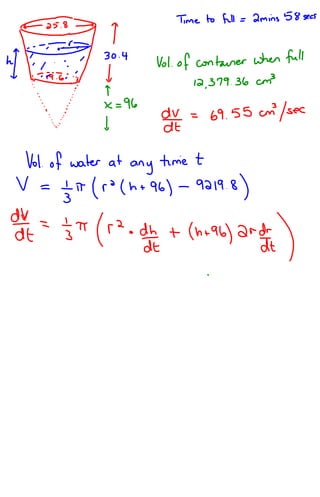 Time to full = 2mins 58secs
25.8
30.4
h
19.6
x = 96
Vol. of container when full
12,379.36 cm³
dv/dt = 69.55 cm³/sec
Vol. of water at any time t
V = 1/3 π (r²(h+96) − 9219.8)
dv/dt = 1/3 π (r² · dh/dt + (h+96) 2r dr/dt)